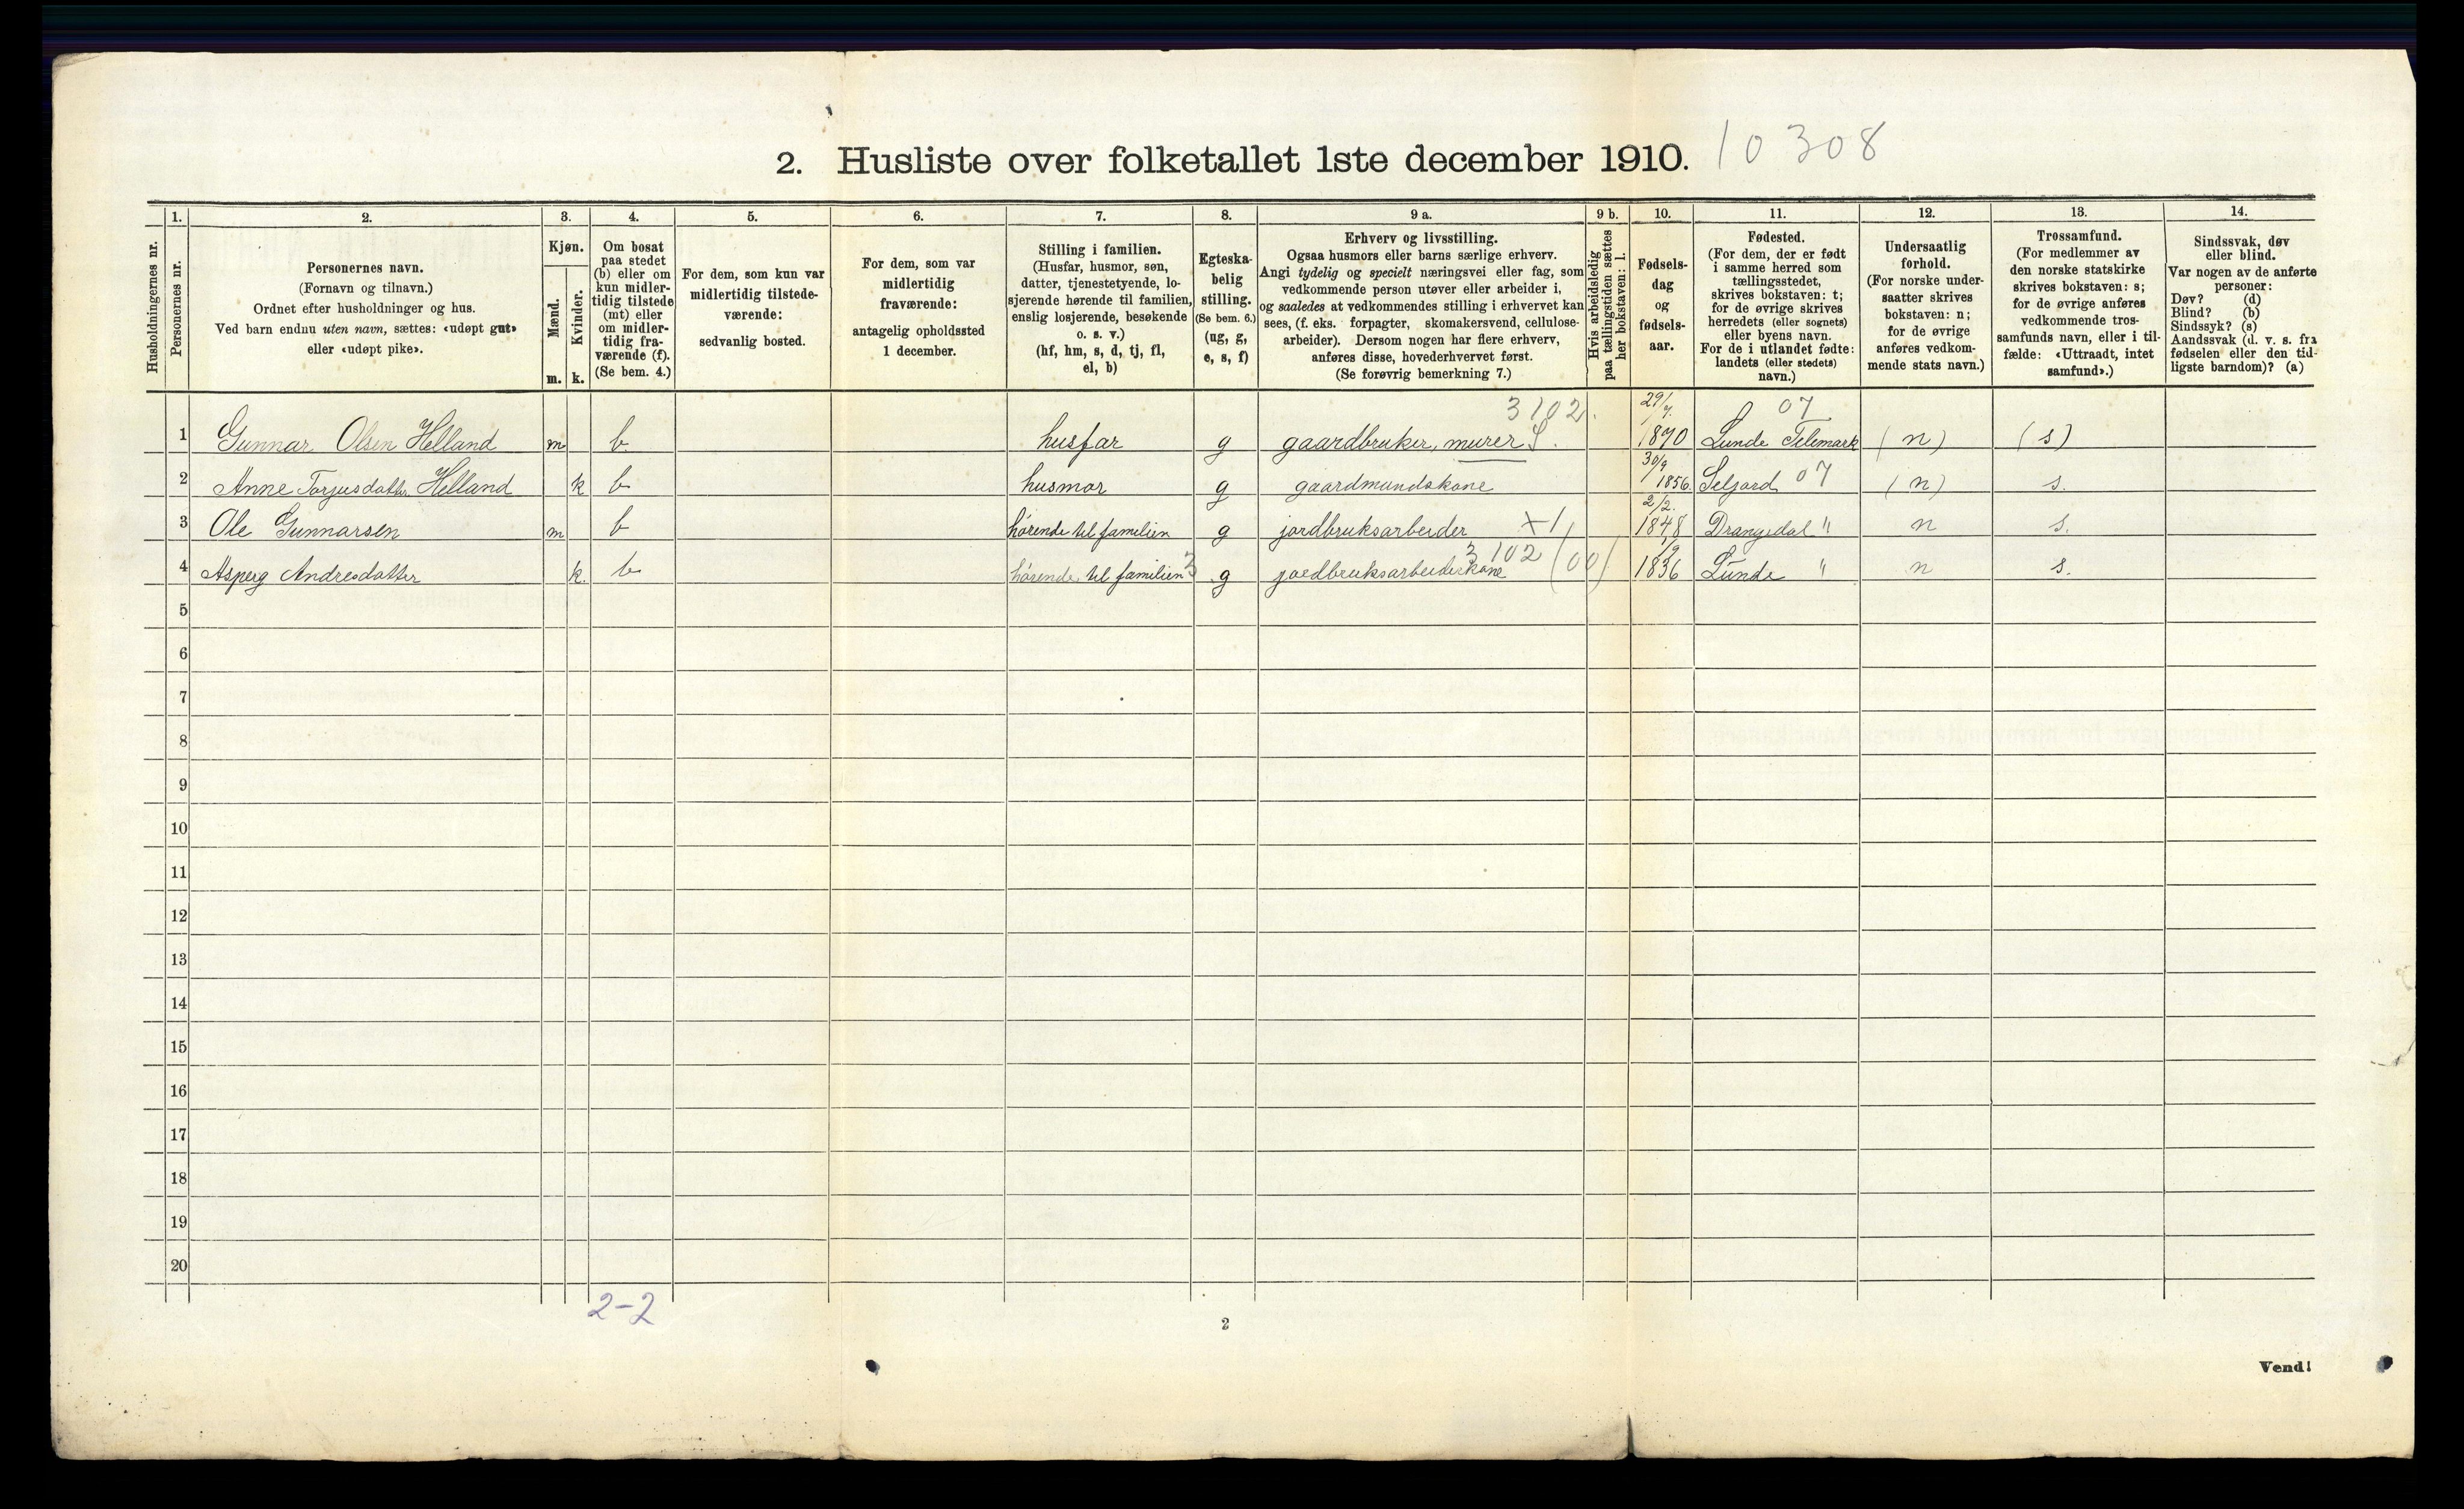 2. Husliste over folketallet 1ste december 1910. 10308
Husholdningernes nr.
1. 2. 3. 4. 5. 6. 7. 8. 9 a. 9 b. 10. 11. 12. 13. 14.
Personernes nr.
Personernes navn.
(Fornavn og tilnavn.)
Ordnet efter husholdninger og hus.
Ved barn endnu uten navn, sættes: «udøpt gut»
eller «udøpt pike».
Kjøn.
Mænd.
Kvinder.
m. k.
Om bosat
paa stedet
(b) eller om
kun midler-
tidig tilstede
(mt) eller
om midler-
tidig fra-
værende (f).
(Se bem. 4.)
For dem, som kun var
midlertidig tilstede-
værende:
sedvanlig bosted.
For dem, som var
midlertidig
fraværende:
antagelig opholdssted
1 december.
Stilling i familien.
(Husfar, husmor, søn,
datter, tjenestetyende, lo-
sjerende hørende til familien,
enslig losjerende, besøkende
o. s. v.)
(hf, hm, s, d, tj, fl,
el, b)
Egteska-
belig
stilling.
(Se bem. 6.)
(ug, g,
e, s, f)
Erhverv og livsstilling.
Ogsaa husmors eller barns særlige erhverv.
Angi tydelig og specielt næringsvei eller fag, som
vedkommende person utøver eller arbeider i,
og saaledes at vedkommendes stilling i erhvervet kan
sees, (f. eks. forpagter, skomakersvend, cellulose-
arbeider). Dersom nogen har flere erhverv,
anføres disse, hovederhvervet først.
(Se forøvrig bemerkning 7.)
Hvis arbeidsledig
paa tællingstiden sættes
her bokstaven: l.
Fødsels-
dag
og
fødsels-
aar.
Fødested.
(For dem, der er født
i samme herred som
tællingsstedet,
skrives bokstaven: t;
for de øvrige skrives
herredets (eller sognets)
eller byens navn.
For de i utlandet fødte:
landets (eller stedets)
navn.)
Undersaatlig
forhold.
(For norske under-
saatter skrives
bokstaven: n;
for de øvrige
anføres vedkom-
mende stats navn.)
Trossamfund.
(For medlemmer av
den norske statskirke
skrives bokstaven: s;
for de øvrige anføres
vedkommende tros-
samfunds navn, eller i til-
fælde: «Uttraadt, intet
samfund».)
Sindssvak, døv
eller blind.
Var nogen av de anførte
personer:
Døv? (d)
Blind? (b)
Sindssyk? (s)
Aandssvak (d. v. s. fra
fødselen eller den tid-
ligste barndom)? (a)
3102. 29/7. 07
1 Gunnar Olsen Helland m b. husfar g gaardbruker, murer S. 1870 Lunde Telemark (n) (s)
30/9
2 Anne Torjusdatter Helland k b husmor g gaardmundskone 1856. Seljord 07 (n) s.
2/2.
3 Ole Gunnarsen m b hörende til familien g jordbruksarbeider x1 1848 Drangedal " n s.
3 3102 (00)
4 Asperg Andresdatter k. b hörende til familien g jordbruksarbeiderkone 1836 Lunde " n s.
5
6
7
8
9
10
11
12
13
14
15
16
17
18
19
20
2-2
2
Vend!